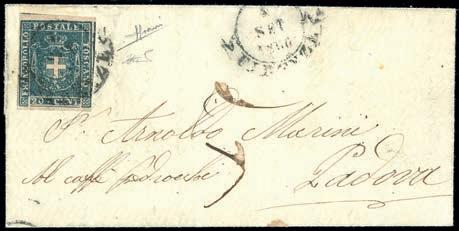 FRANCOBOLLO
POSTALE
TOSCANO
20 CENT
SET
1860
S. Arnoldo Marini
Al caffè Pedrocchi
5
Padova